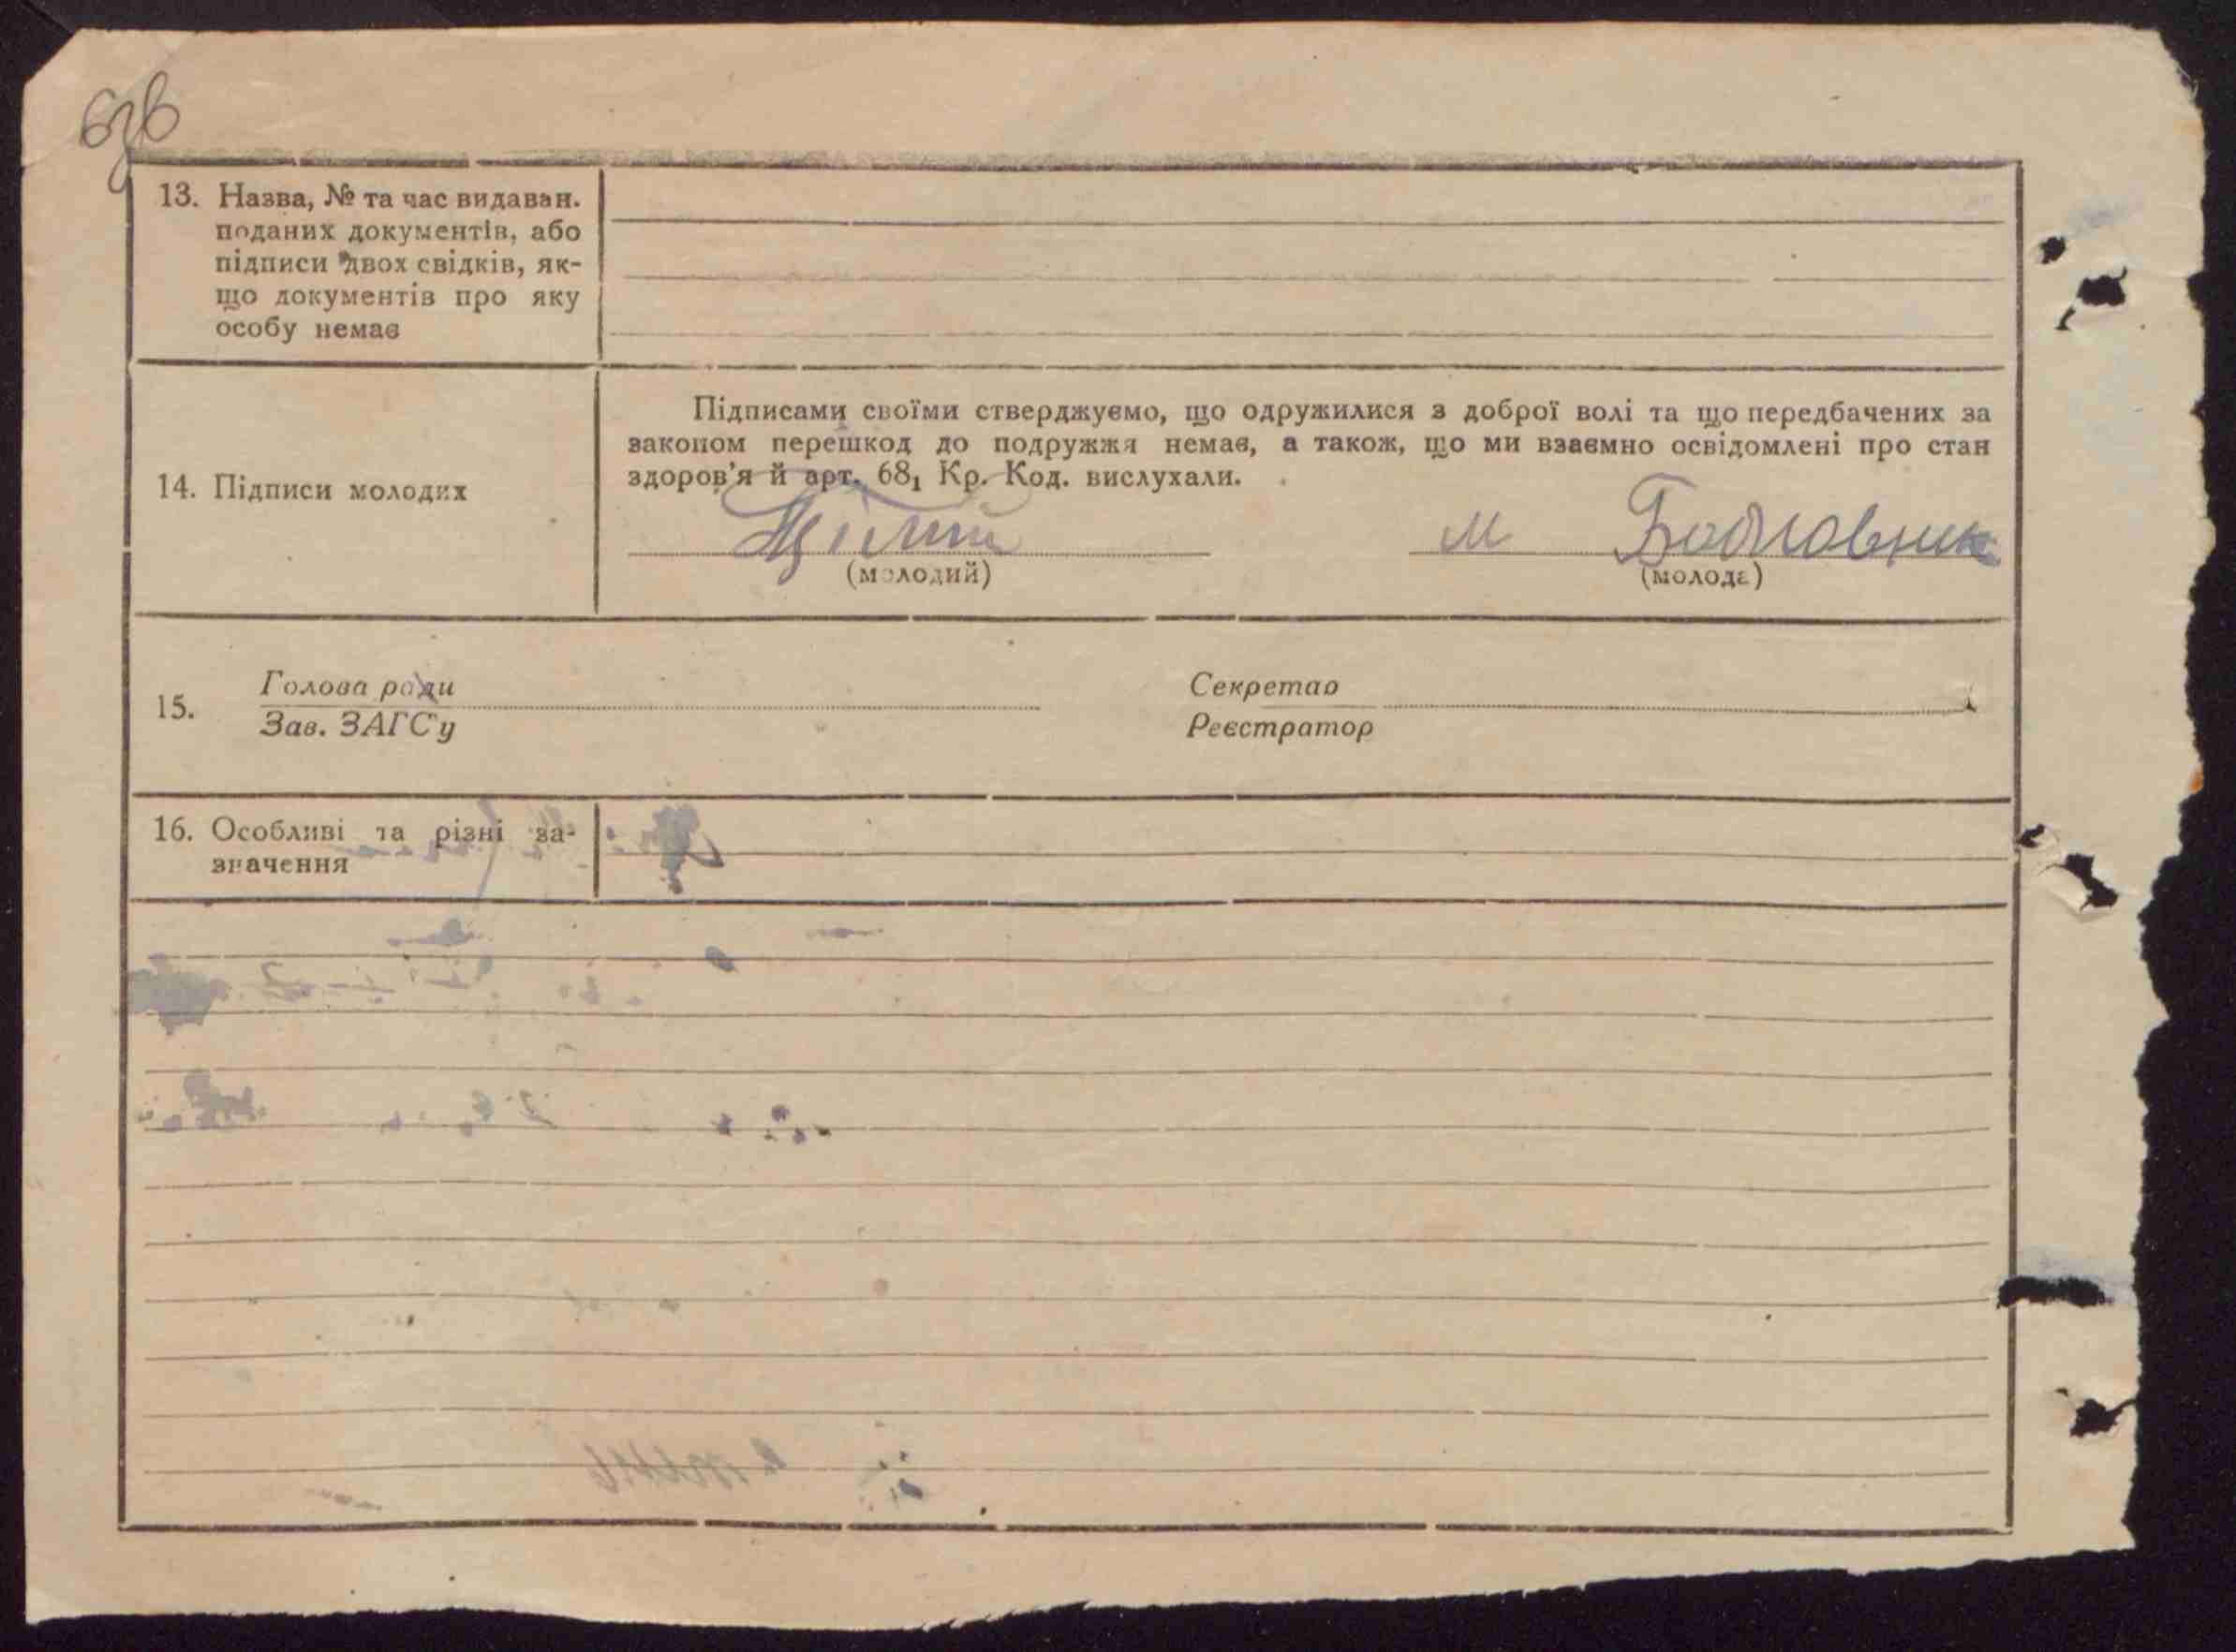 13. Назва, № та час видаван.
поданих документів, або
підписи двох свідків, як-
що документів про яку
особу немає
Підписами своїми стверджуємо, що одружилися з доброї волі та що передбачених за
законом перешкод до подружжя немає, а також, що ми взаємно освідомлені про стан
здоров'я й арт. 68₁ Кр. Код. вислухали.
14. Підписи молодих
М
(молодий)
(молода)
15.
Голова ради
Зав. ЗАГС'у
Секретар
Реєстратор
16. Особливі та різні за-
значення